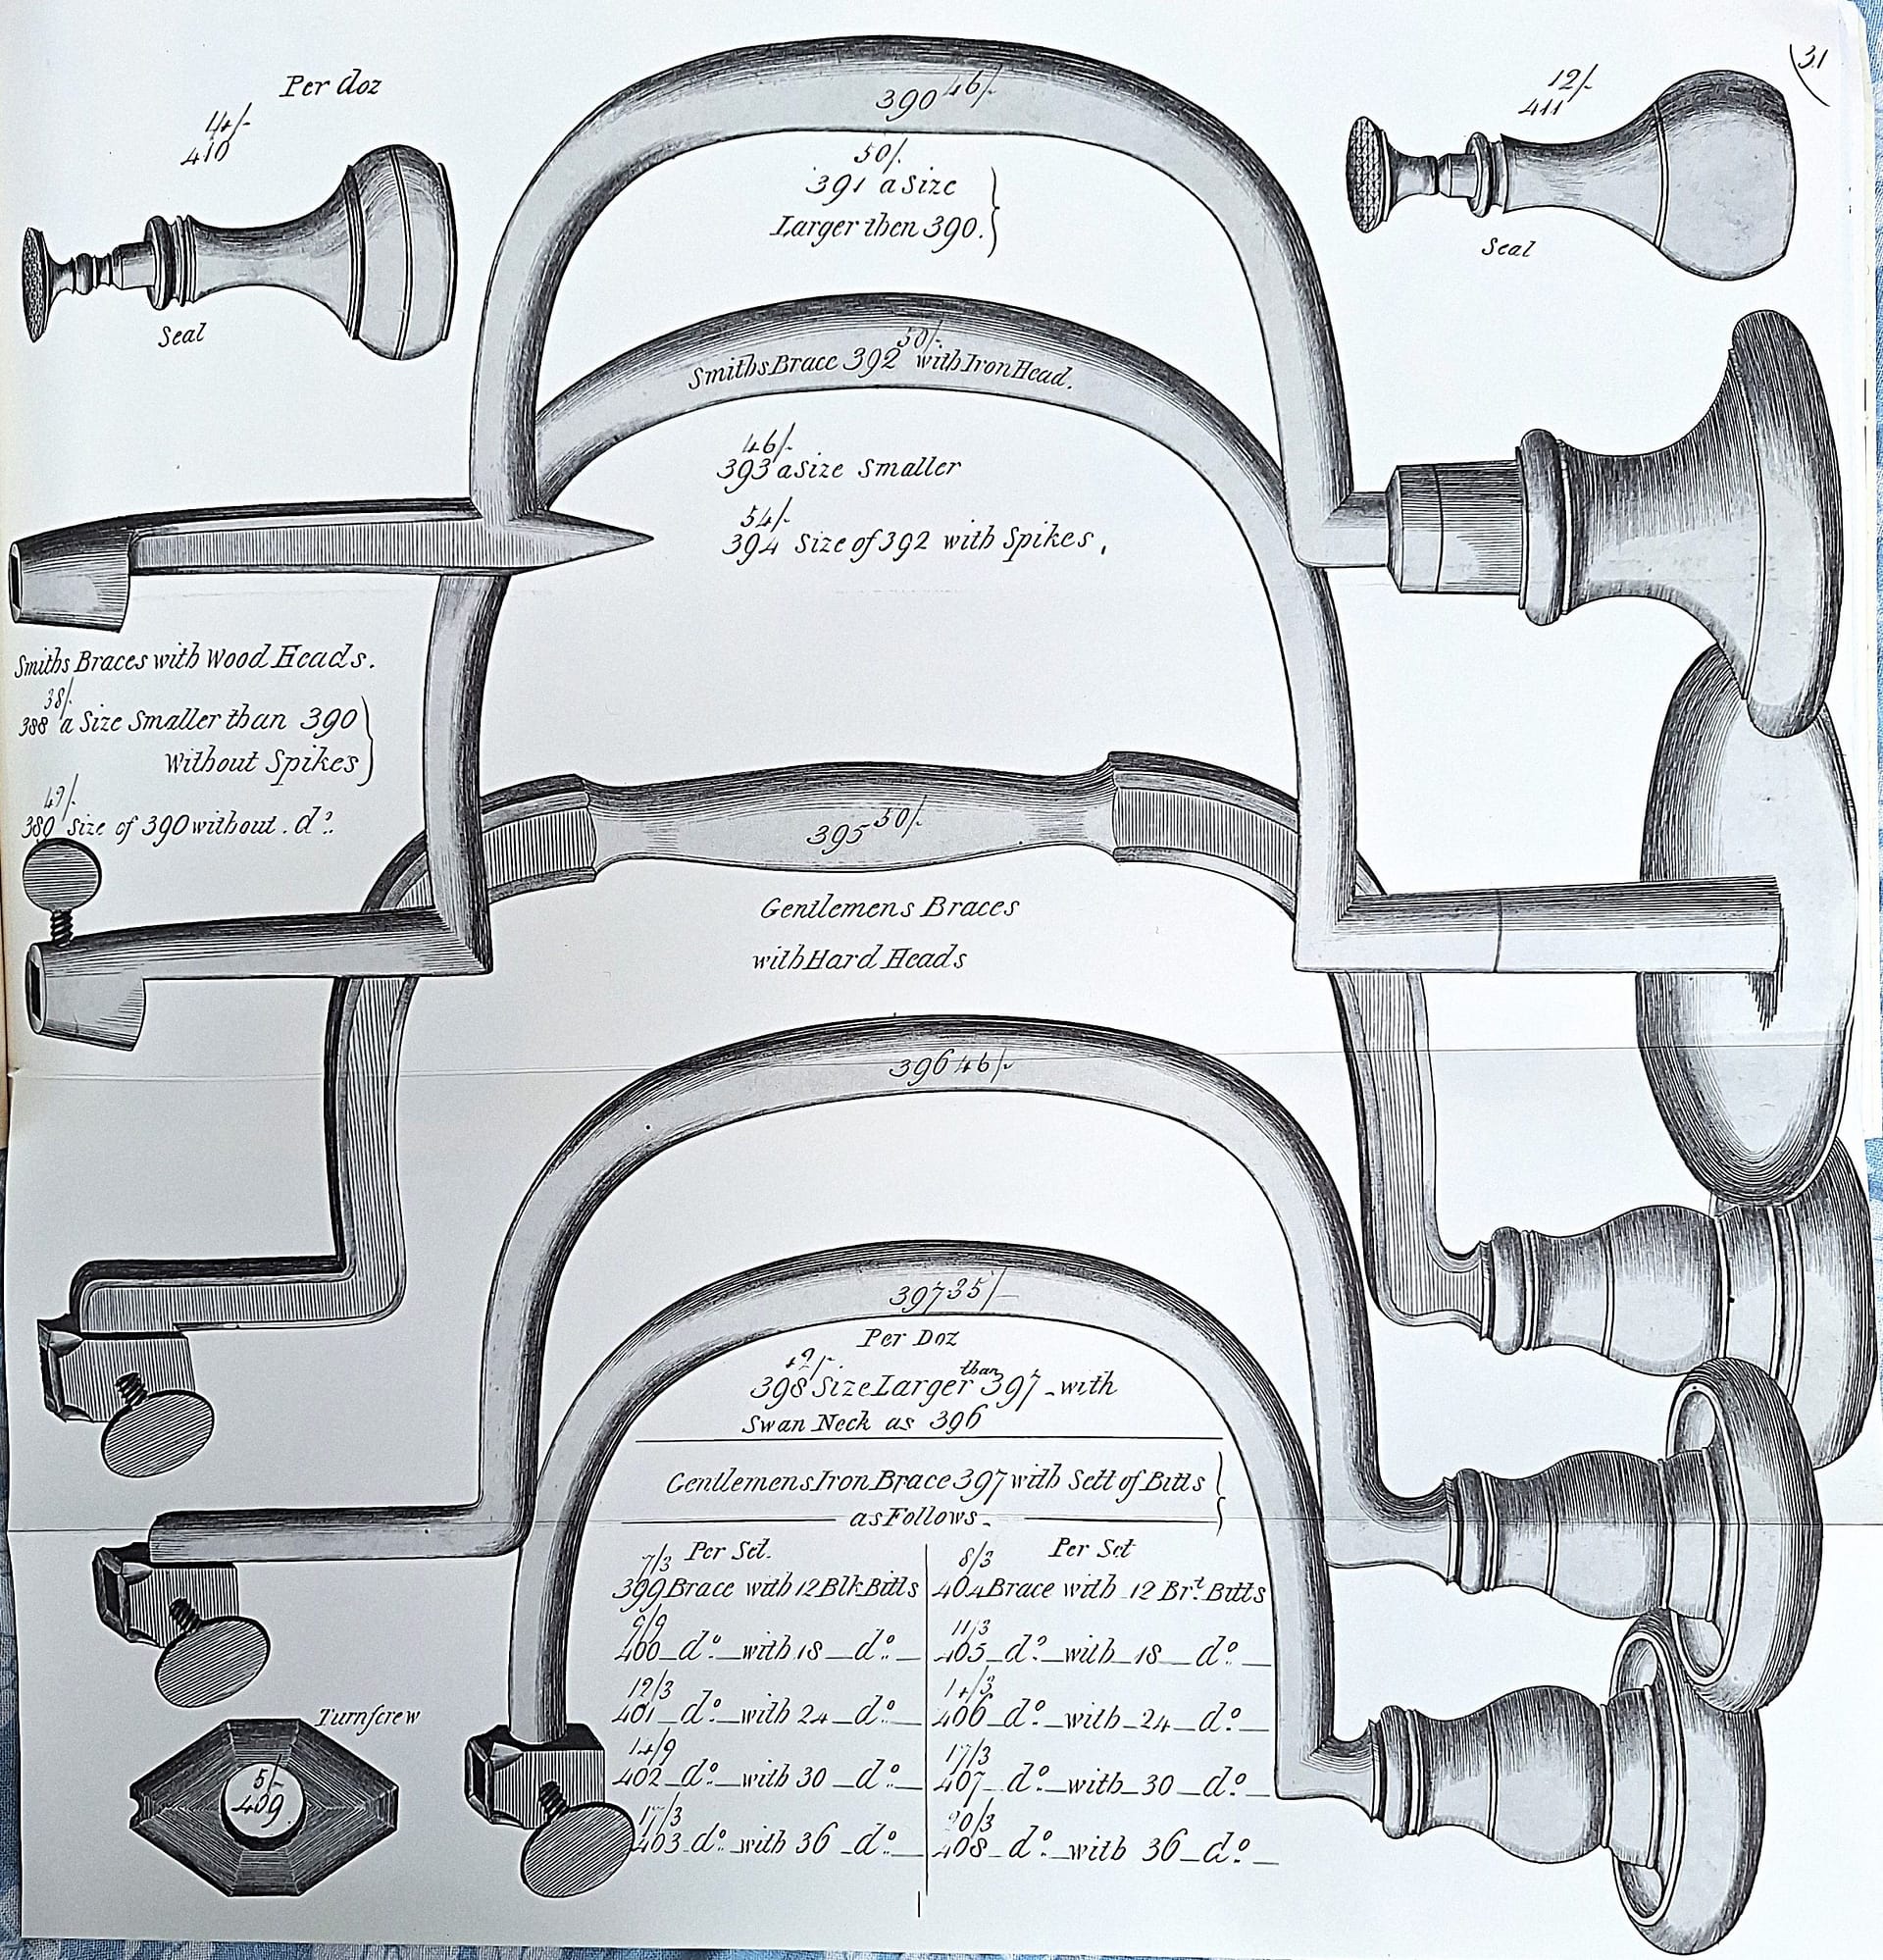 31
Per doz
14/-
410
Seal
12/-
411
Seal
390 46/-
50/-
391 a Size
Larger then 390.
Smiths Brace 392 50/- with Iron Head.
46/-
393 a Size Smaller
54/-
394 Size of 392 with Spikes,
Smiths Braces with Wood Heads.
38/-
388 a Size Smaller than 390
Without Spikes
389 Size of 390 without. do.
395 50/-
Gentlemens Braces
with Hard Heads
396 46/-
397 35/-
Per Doz
42/-
398 Size Larger than 397 - with
Swan Neck as 396
Gentlemens Iron Brace 397 with Sett of Bitts
as Follows -
Per Set.
7/3
399 Brace with 12 Blk Bitts
9/9
400 do. with 18 do.
12/3
401 do. with 24 do.
14/9
402 do. with 30 do.
17/3
403 do. with 36 do.
Per Set
8/3
404 Brace with 12 Brt. Bitts
11/3
405 do. with 18 do.
14/3
406 do. with 24 do.
17/3
407 do. with 30 do.
20/3
408 do. with 36 do.
Turnscrew
5/-
409